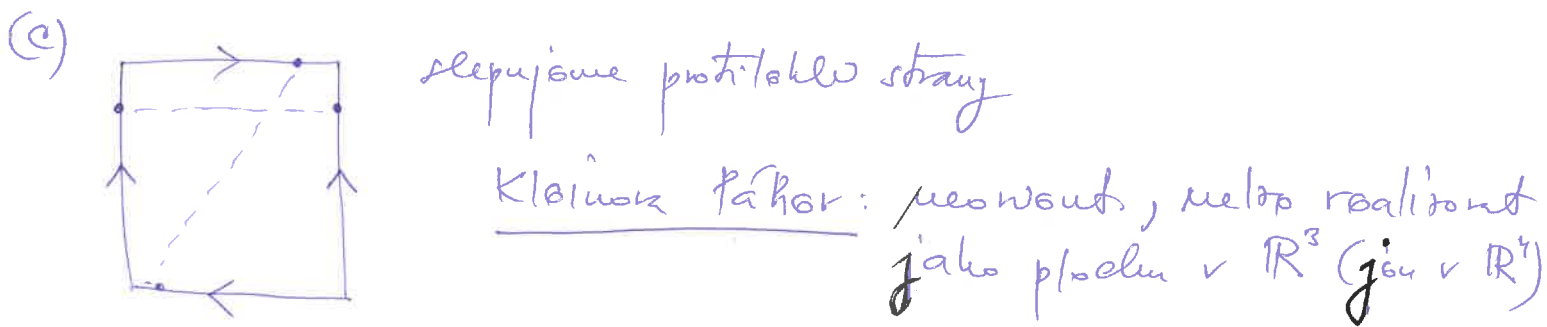 (c)
slepujeme protilehlé strany
Kleinova láhev: neorient., nelze realizovat
jako plochu v ℝ³ (jen v ℝ⁴)